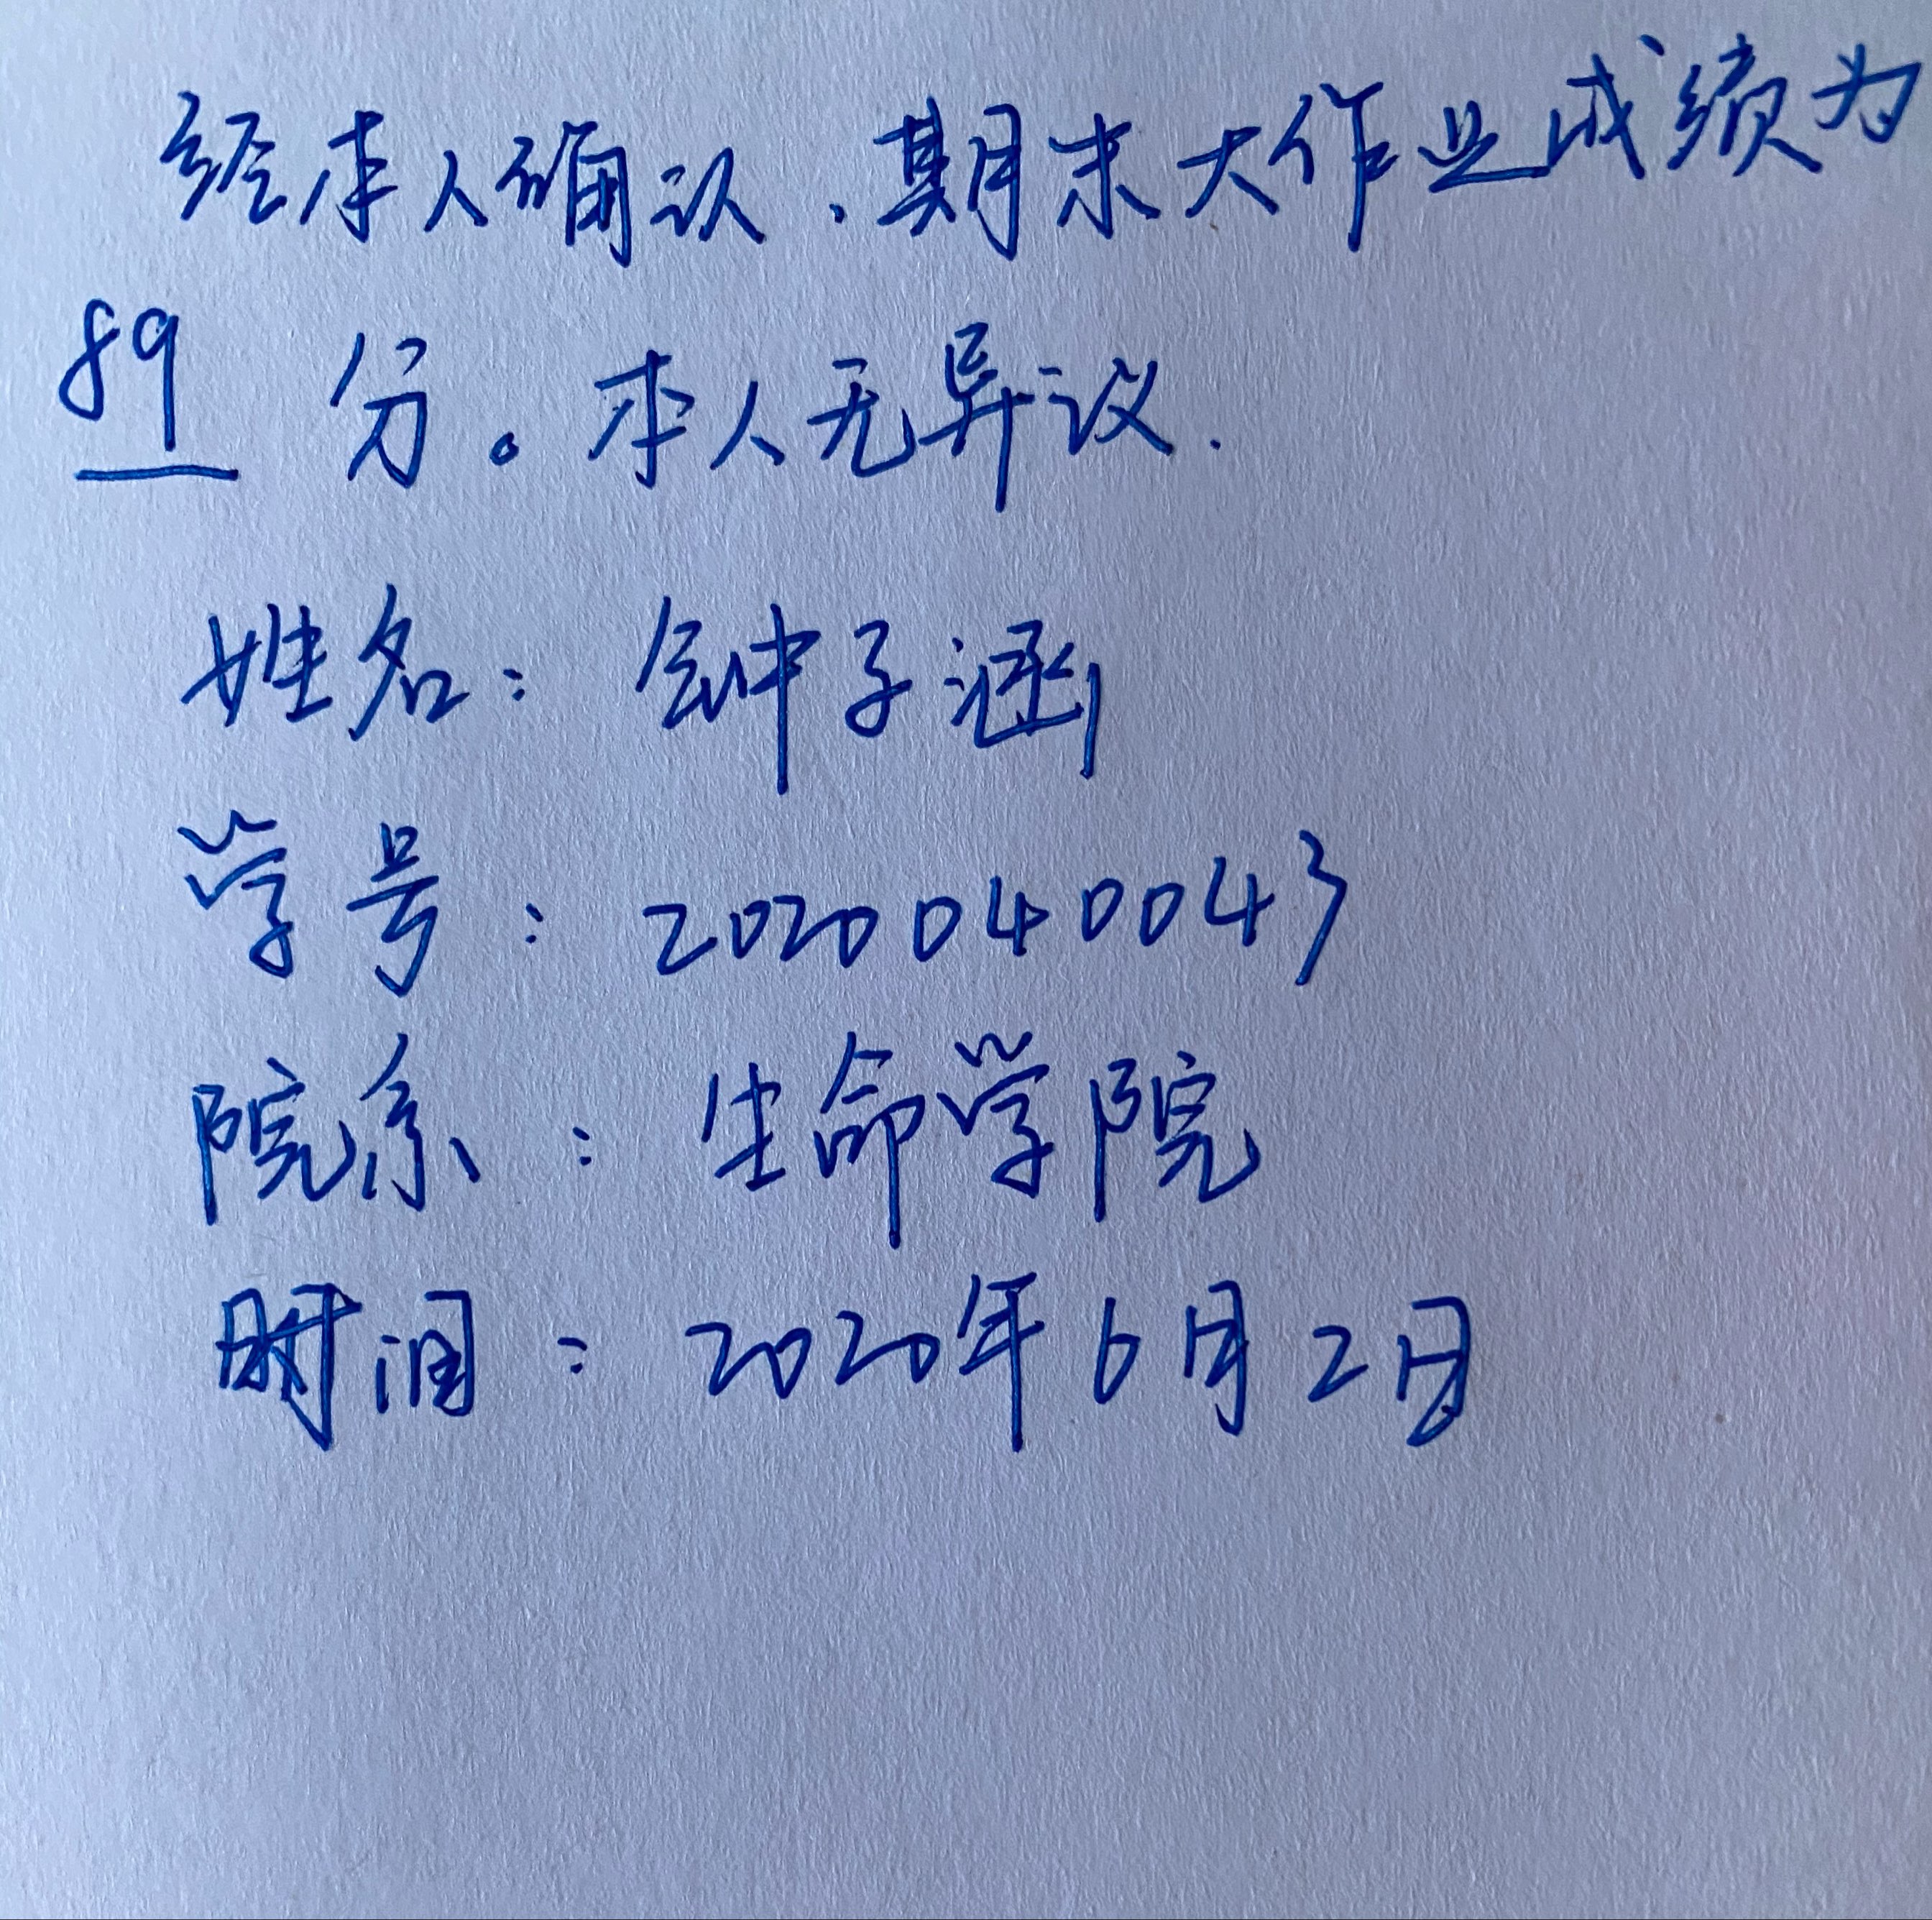 经本人确认、期末大作业成绩为
89 分。本人无异议.
姓名：钟子涵
学号：2020040043
院系：生命学院
时间：2020年6月2日